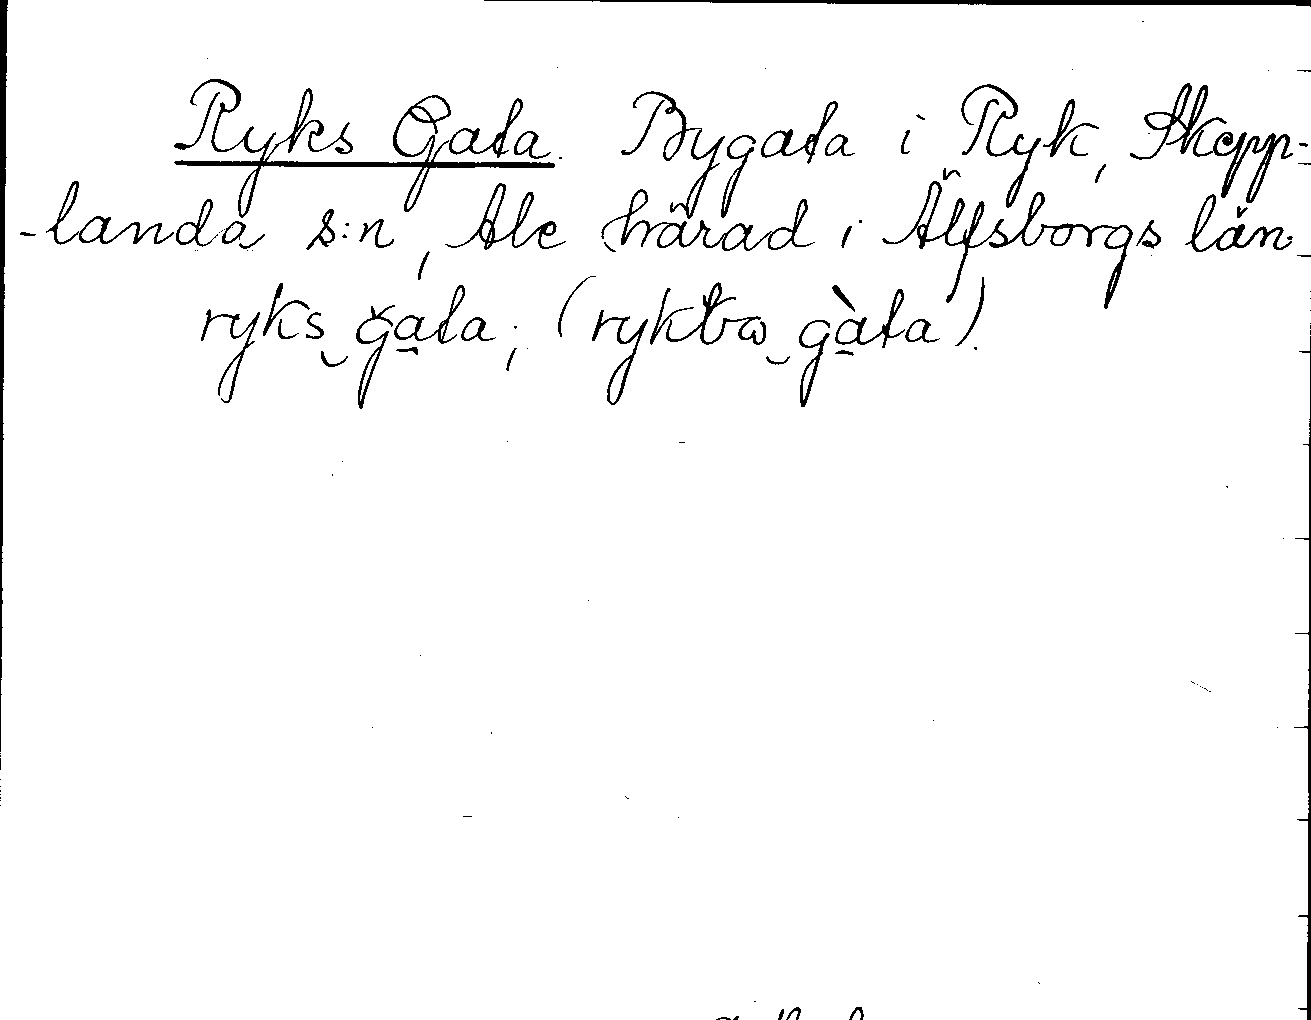 Ryks Gata. Bygata i Ryk, Skepp-
-landa s:n, Ale härad i Älfsborgs län.
ryks gata; (ryktω gàta).